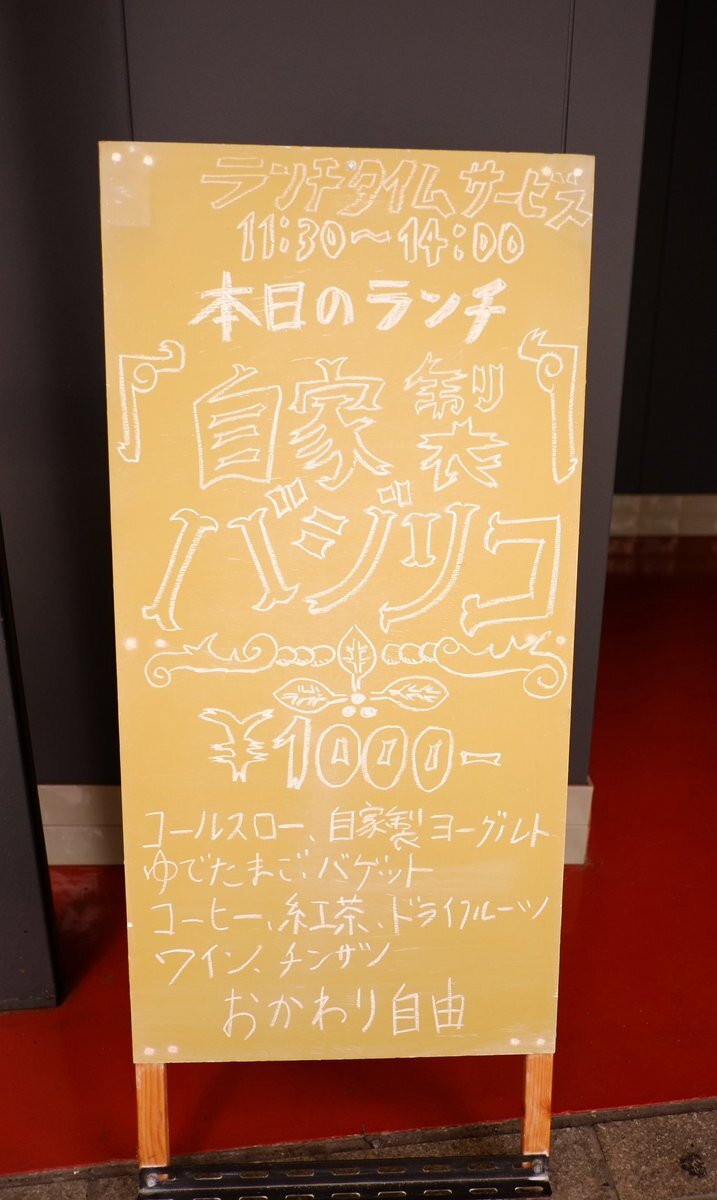 ランチタイムサービス
11:30〜14:00
本日のランチ
自家製
バジリコ
¥1000-
コールスロー、自家製ヨーグルト
ゆでたまご、バゲット
コーヒー、紅茶、ドライフルーツ
ワイン、チンザノ
おかわり自由